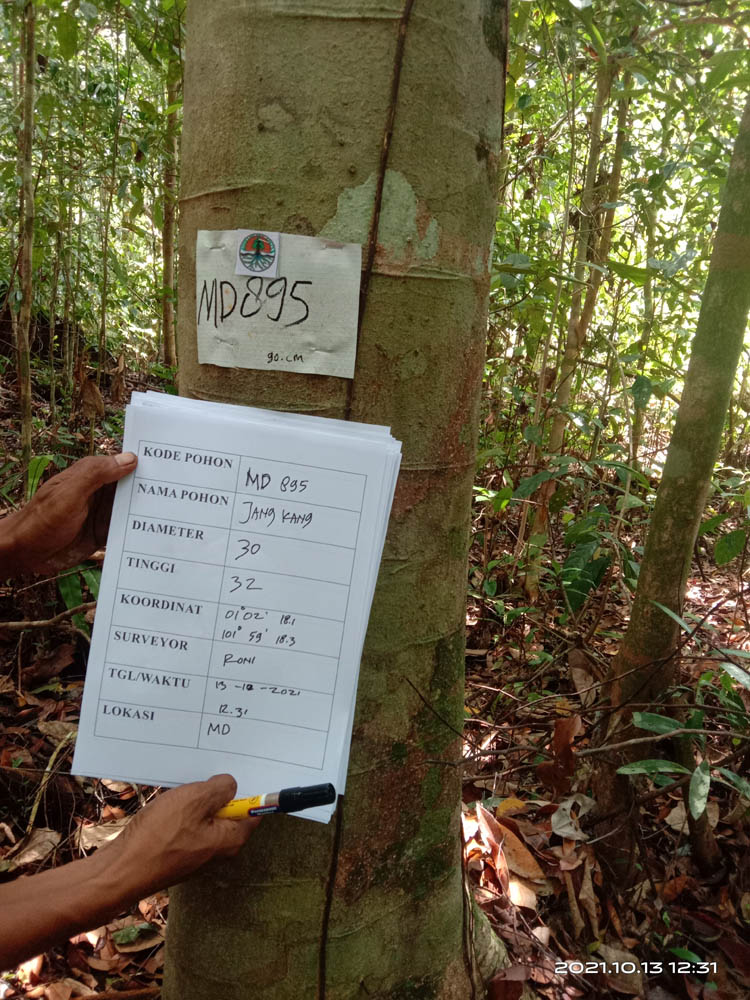 MD 895
90.cm
KODE POHON MD 895
NAMA POHON JANG KANG
DIAMETER 30
TINGGI 32
KOORDINAT 01° 02' 18.1
101° 59' 18.3
SURVEYOR RONI
TGL/WAKTU 13-10-2021
12.31
LOKASI MD
2021.10.13 12:31